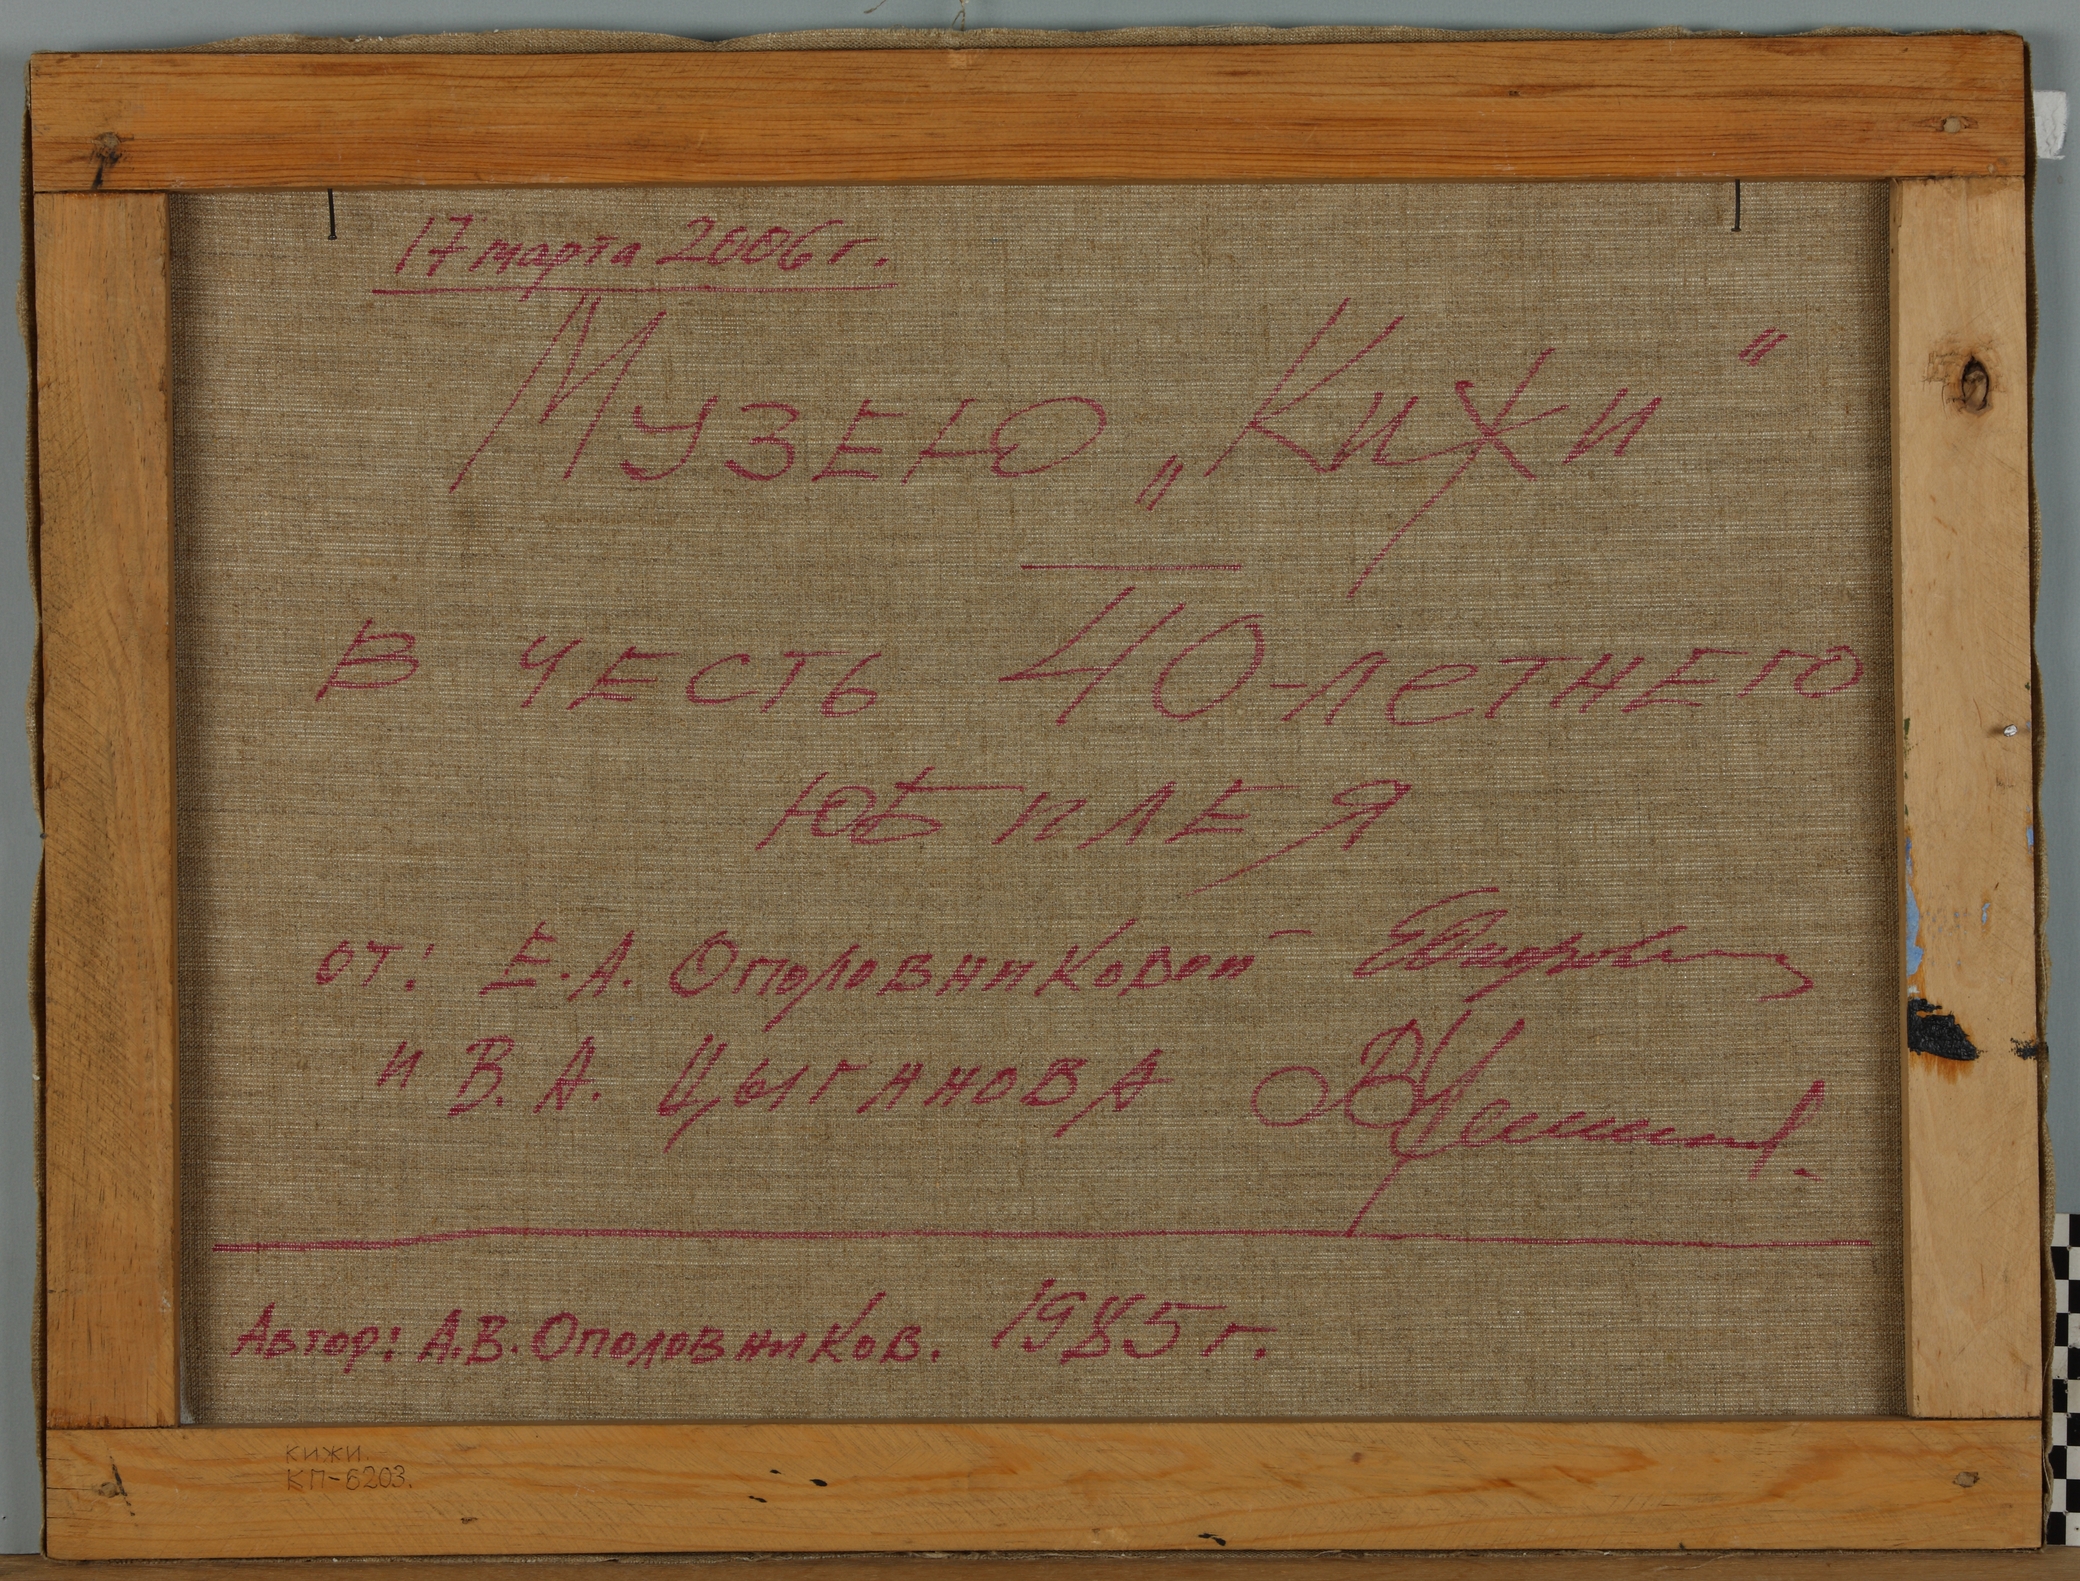 17 марта 2006 г.
Музею „Кижи"
В честь 40-летнего
юбилея
от: Е.А. Ополовниковой
и В.А. Цыганова
Автор: А.В. Ополовников. 1985 г.
КИЖИ.
КП-6203.